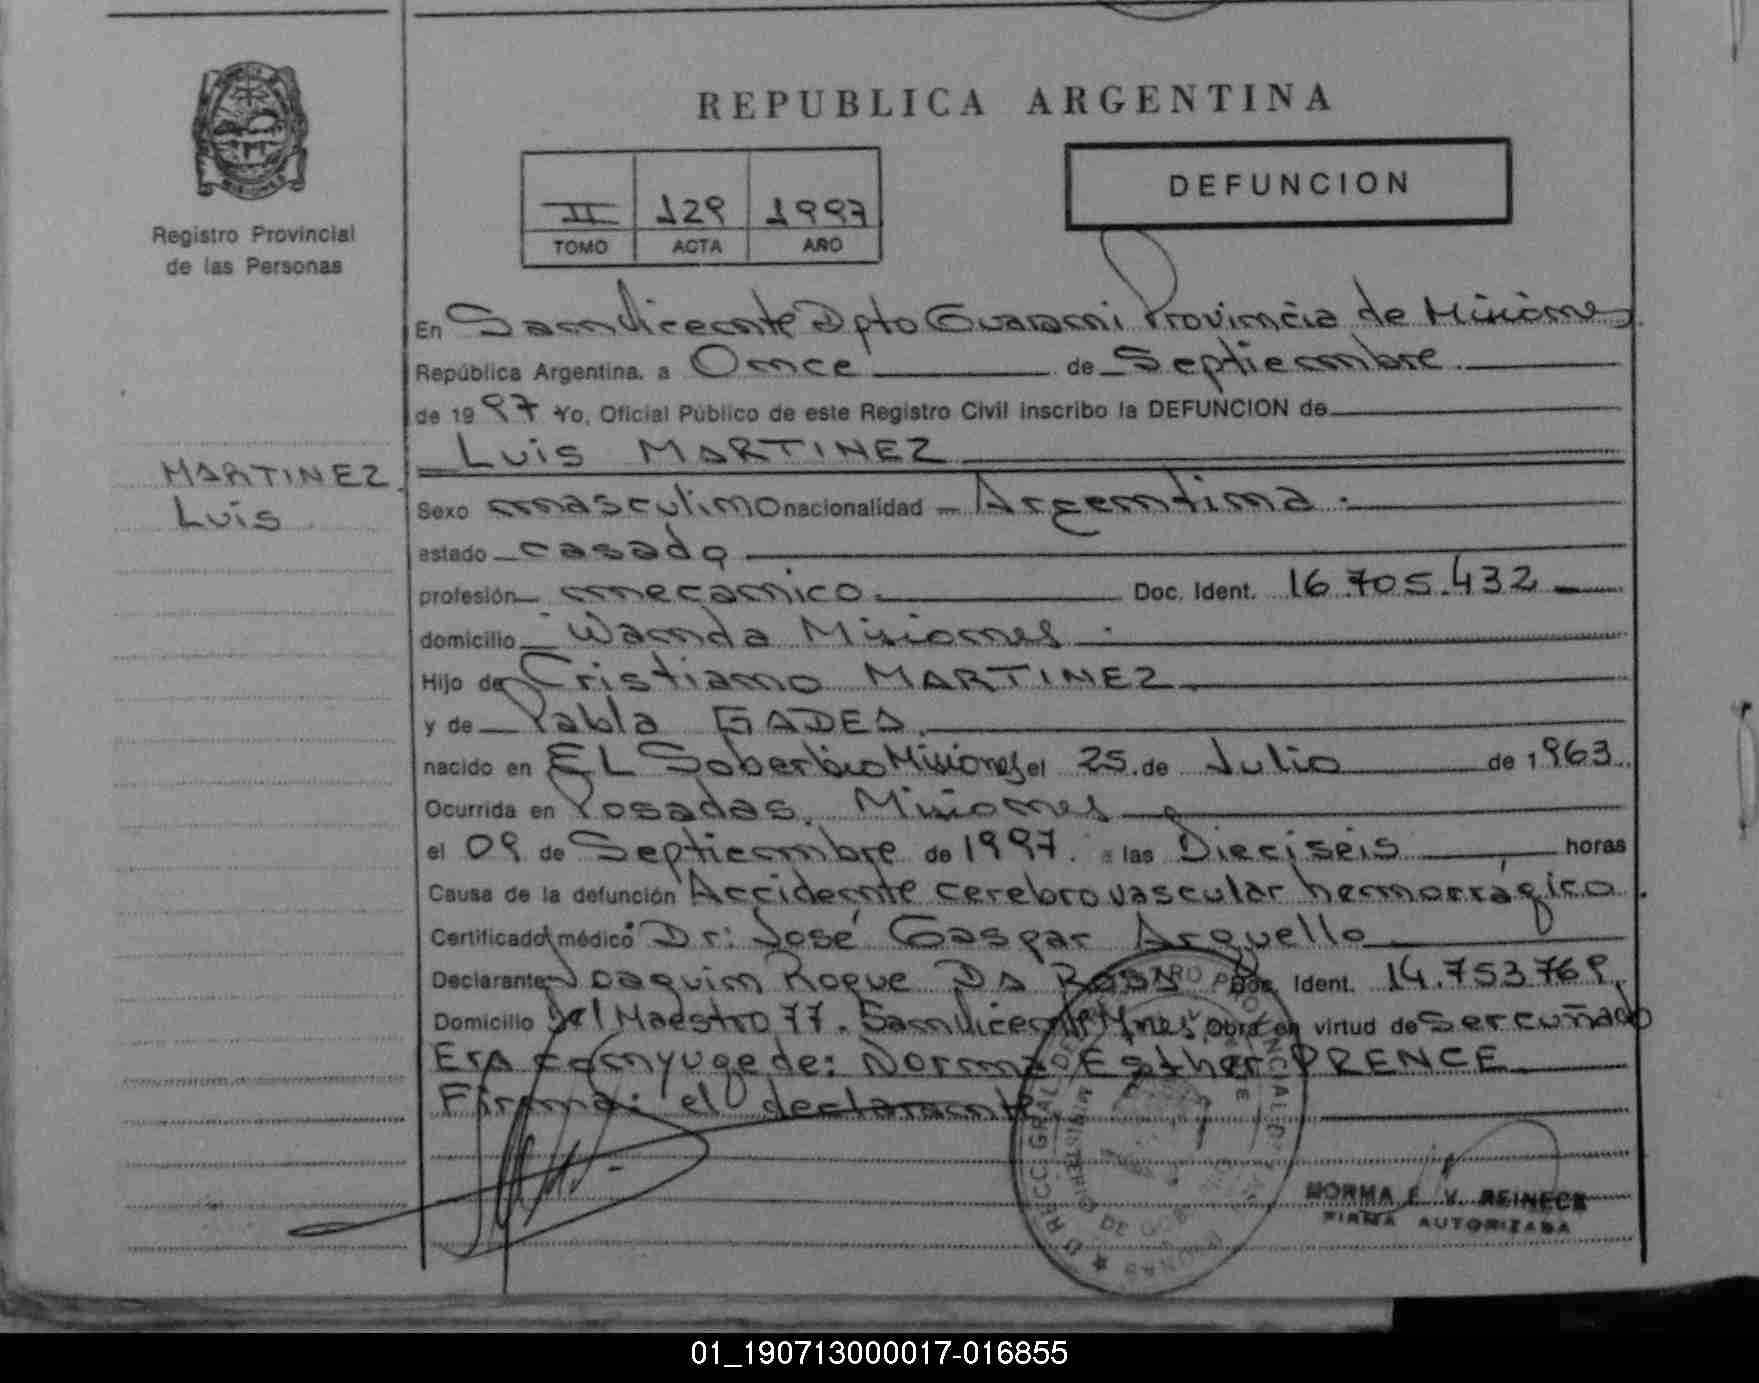 REPUBLICA ARGENTINA
DEFUNCION
II 129 1997
TOMO ACTA AÑO
Registro Provincial
de las Personas
MARTINEZ
Luis
En San Vicente Dpto Guarani Provincia de Misiones
República Argentina, a Once de Septiembre
de 1997 Yo, Oficial Público de este Registro Civil inscribo la DEFUNCION de
Luis MARTINEZ
Sexo masculino nacionalidad Argentina.
estado casado
profesión mecanico. Doc. Ident. 16.705.432
domicilio Wanda Misiones.
Hijo de Cristiano MARTINEZ
y de Pabla GADEA
nacido en EL Soberbio Misiones el 25 de Julio de 1963
Ocurrida en Posadas, Misiones
el 09 de Septiembre de 1997. a las Dieciseis horas
Causa de la defunción Accidente cerebro vascular hemorrágico.
Certificado médico Dr: José Gaspar Arguello
Declarante Joaquim Roque DA ROSA Doc. Ident. 14.753.769
Domicilio Del Maestro 77. San Vicente Mnes, Obra en virtud de ser cuñado
Era conyuge de: Norma Esther PRENCE
Firma: el declarante
NORMA E. V. REINECK
FIRMA AUTORIZADA
01_190713000017-016855